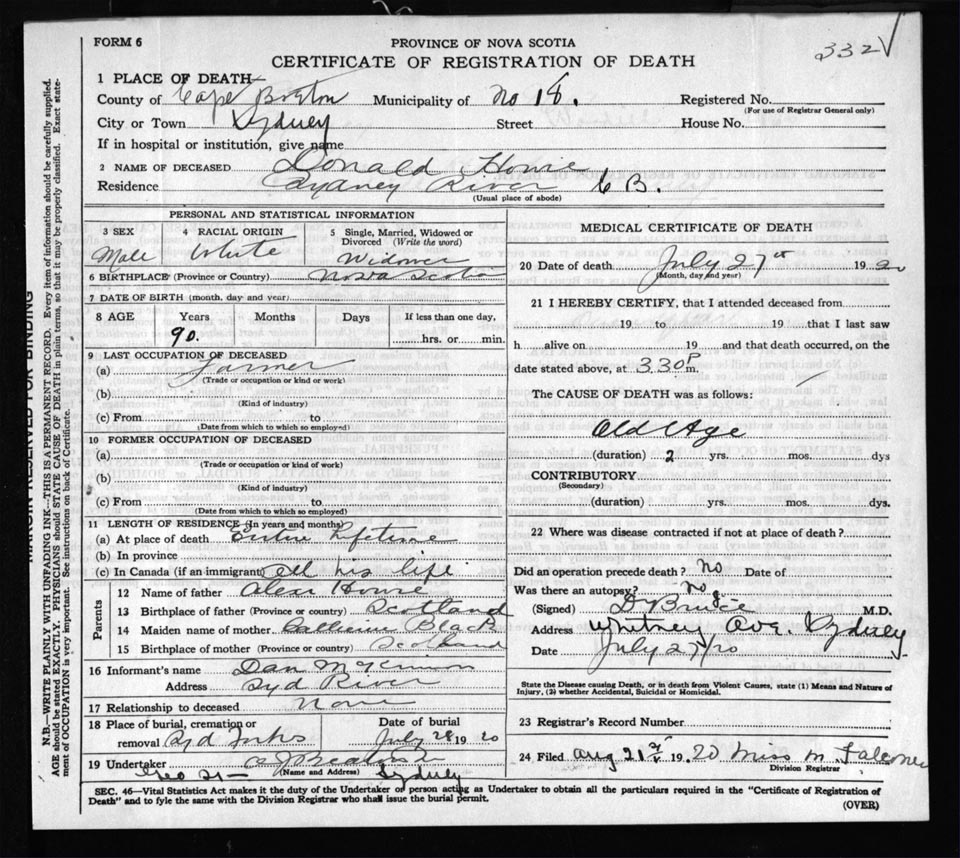 FORM 6
PROVINCE OF NOVA SCOTIA
332
CERTIFICATE OF REGISTRATION OF DEATH
1 PLACE OF DEATH
County of Cape Breton Municipality of No 18. Registered No.
(For use of Registrar General only)
City or Town Sydney Street House No.
If in hospital or institution, give name
2 NAME OF DECEASED Donald Howie
Residence Sydney River C B.
(Usual place of abode)
PERSONAL AND STATISTICAL INFORMATION
3 SEX 4 RACIAL ORIGIN 5 Single, Married, Widowed or Divorced (Write the word)
Male White Widower
6 BIRTHPLACE (Province or Country) Nova Scotia
7 DATE OF BIRTH (month, day and year)
8 AGE Years Months Days If less than one day,
90. hrs. or min.
9 LAST OCCUPATION OF DECEASED
(a) Farmer
(Trade or occupation or kind or work)
(b)
(Kind of industry)
(c) From to
(Date from which to which so employed)
10 FORMER OCCUPATION OF DECEASED
(a)
(Trade or occupation or kind of work)
(b)
(Kind of industry)
(c) From to
(Date from which to which so employed)
11 LENGTH OF RESIDENCE (In years and months)
(a) At place of death Entire Lifetime
(b) In province
(c) In Canada (if an immigrant) all his life
Parents
12 Name of father Alex Howie
13 Birthplace of father (Province or country) Scotland
14 Maiden name of mother Catherine Black
15 Birthplace of mother (Province or country) Scotland
16 Informant's name Dan
Address Syd River
17 Relationship to deceased None
18 Place of burial, cremation or Date of burial
removal Syd Forks July 28 19 20
19 Undertaker
(Name and Address)
Geo St Sydney
MEDICAL CERTIFICATE OF DEATH
20 Date of death July 27th 19 20
(Month, day and year)
21 I HEREBY CERTIFY, that I attended deceased from
19 to 19 that I last saw
h alive on 19 and that death occurred, on the
date stated above, at 3.30 P m.
The CAUSE OF DEATH was as follows:
Old Age
(duration) 2 yrs. mos. dys
CONTRIBUTORY
(Secondary)
(duration) yrs. mos. dys.
22 Where was disease contracted if not at place of death?
Did an operation precede death? No Date of
Was there an autopsy? No
(Signed) D Bruce M.D.
Address Whitney Ave. Sydney
Date July 27/20
State the Disease causing Death, or in death from Violent Causes, state (1) Means and Nature of
Injury, (2) whether Accidental, Suicidal or Homicidal.
23 Registrar's Record Number
24 Filed Aug 21st 19 20 Miss M Falconer
Division Registrar
SEC. 46—Vital Statistics Act makes it the duty of the Undertaker or person acting as Undertaker to obtain all the particulars required in the "Certificate of Registration of
Death" and to fyle the same with the Division Registrar who shall issue the burial permit.
(OVER)
MARGIN RESERVED FOR BINDING
N.B.—WRITE PLAINLY WITH UNFADING INK—THIS IS A PERMANENT RECORD. Every item of information should be carefully supplied.
AGE should be stated EXACTLY. PHYSICIANS should STATE CAUSE OF DEATH in plain terms, so that it may be properly classified. Exact state-
ment of OCCUPATION is very important. See instructions on back of Certificate.